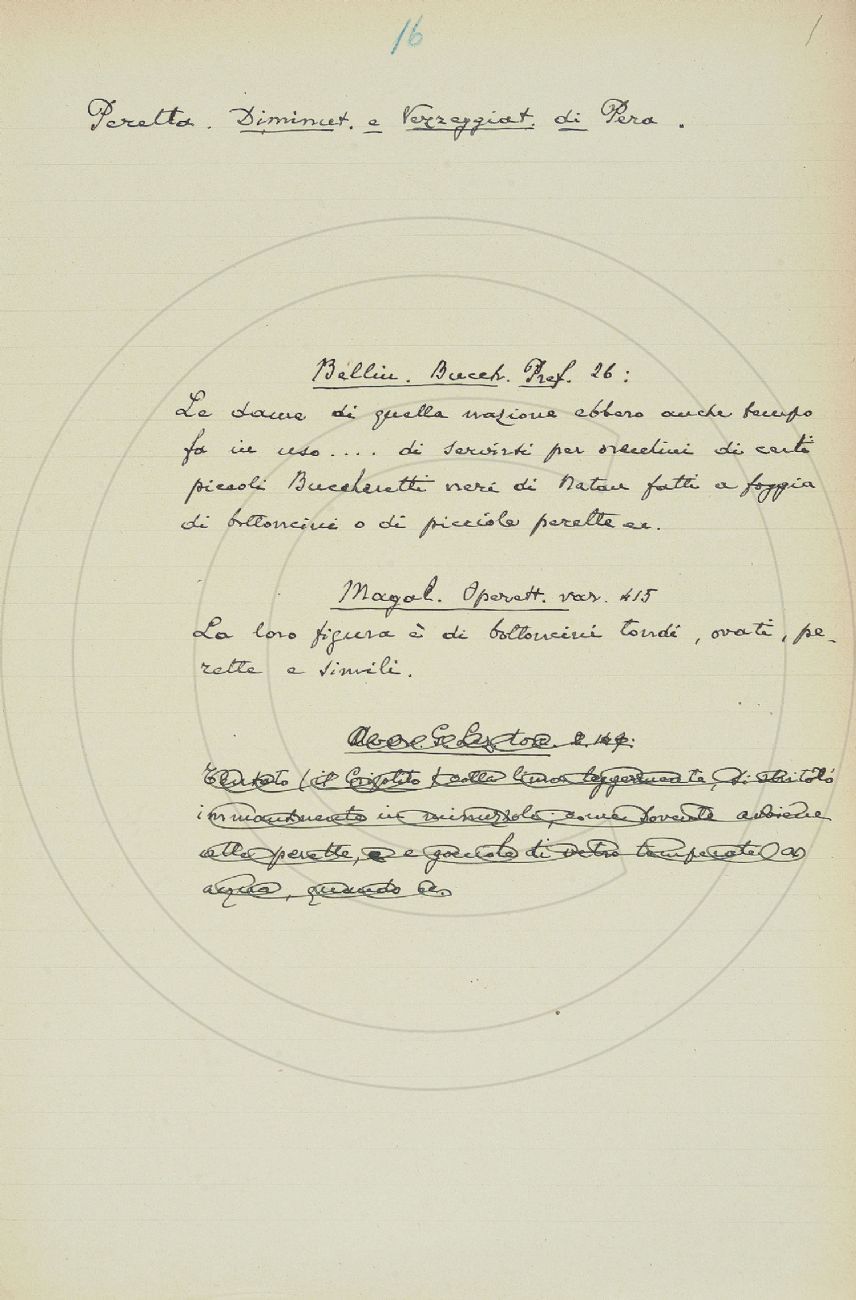 16
Peretta. Diminut. e Vezzeggiat. di Pera.
Bellin. Bucch. Pref. 26:
Le dame di quella nazione ebbero anche tempo
fa in uso.... di servirsi per orecchini di certi
piccoli Buccheretti neri di Natan fatti a foggia
di bottoncini o di picciole perette ec.
Magal. Operett. var. 415
La loro figura è di bottoncini tondi, ovati, pe-
rette e simili.
(il colla lima leggermente, si stritolò
in minuzzoli, come sovente avviene
alle perette, e gocciole di vetro temperate
acqua, quando ec.